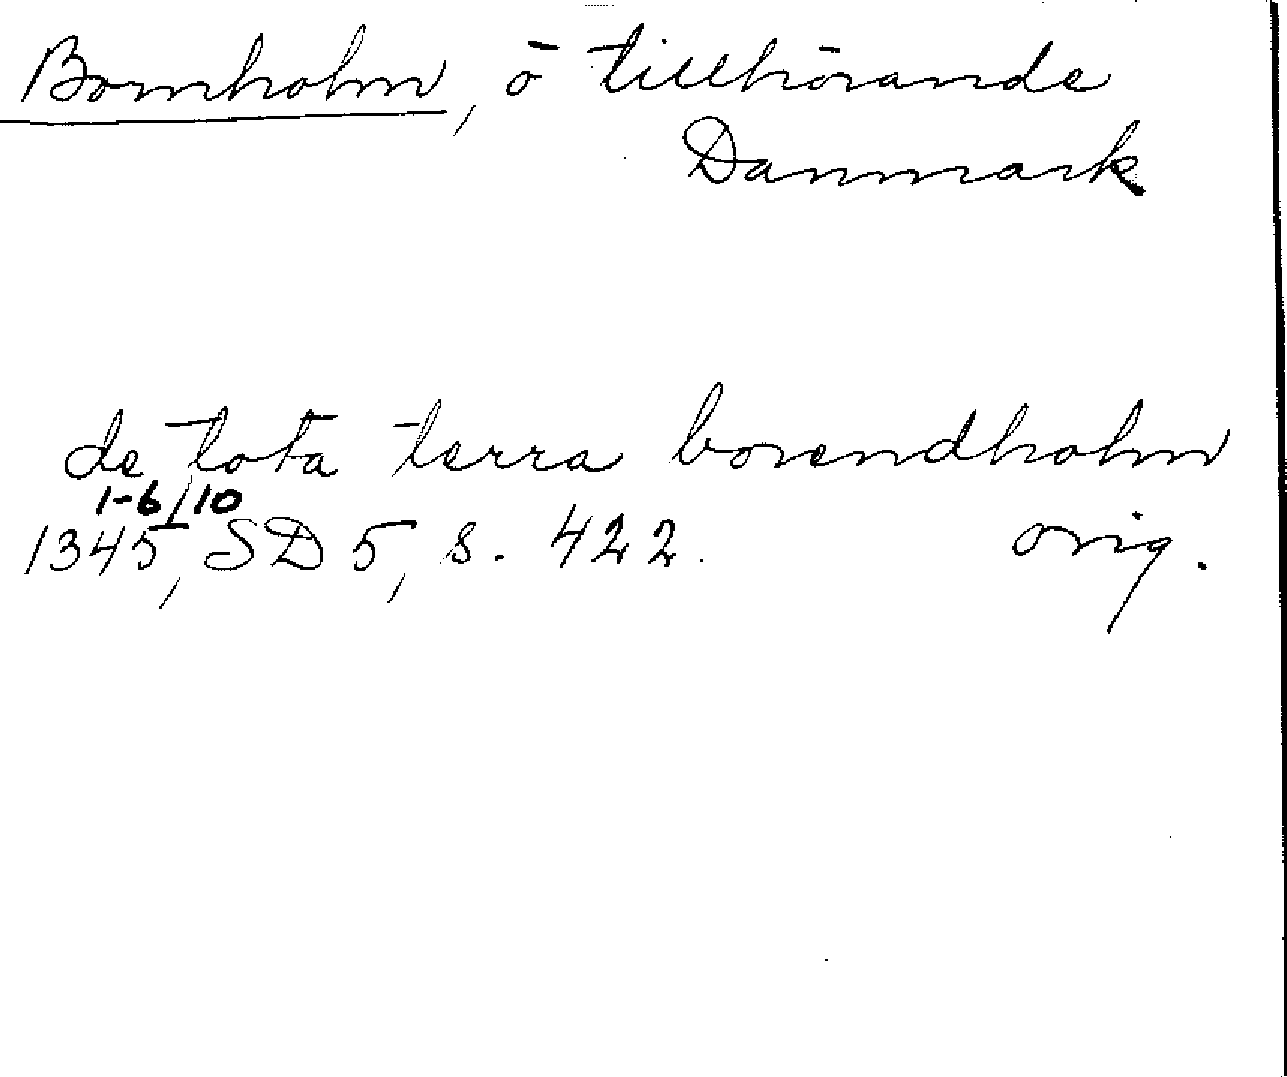 Bornholm, ö tillhörande
Danmark
de tota terra borendholm
1-6/10
1345, SD 5, s. 422. orig.